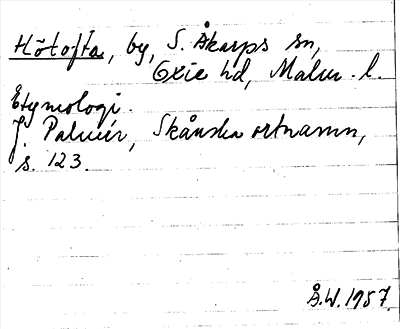 Hötofta, by, S. Åkarps sn,
Oxie hd, Malm. l.
Etymologi.
J. Palmér, Skånska ortnamn,
s. 123.
Å.W. 1957.